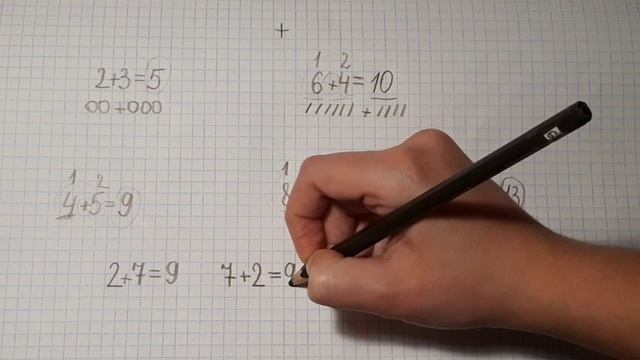 +
2+3=5
1 2
6+4=10
1 2
4+5=9
1
8
13
2+7=9
7+2=9